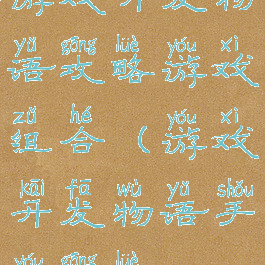 游戏开发物
yǔ gōng lüè yóu xì
语攻略游戏
zǔ hé yóu xì
组合（游戏
kāi fā wù yǔ shǒu
开发物语手
yóu gōng lüè